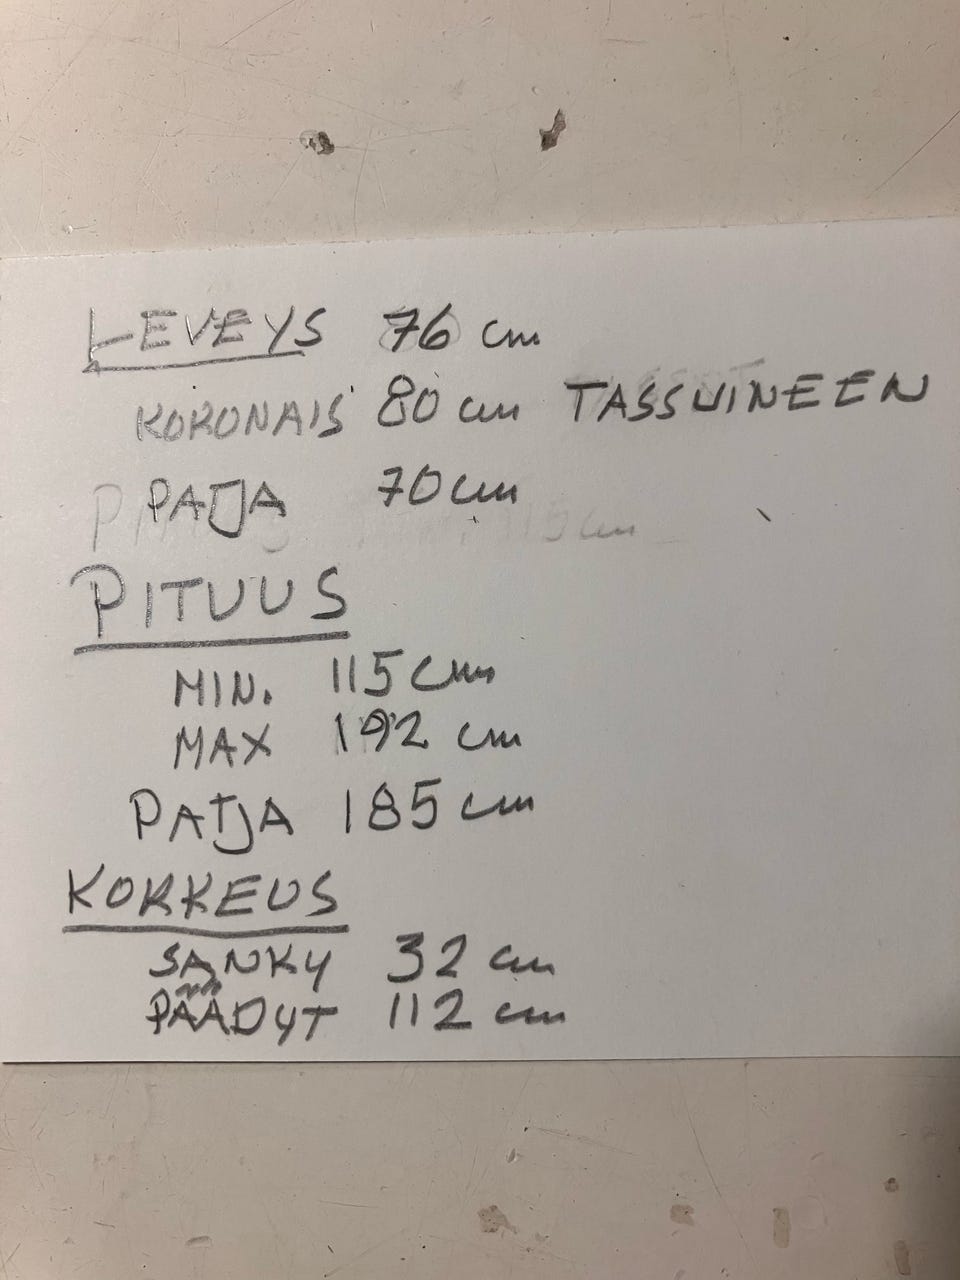 LEVEYS 76 cm
KOKONAIS 80 cm TASSUINEEN
PATJA 70 cm
PITUUS
MIN. 115 cm
MAX 192 cm
PATJA 185 cm
KORKEUS
SÄNKY 32 cm
PÄÄDYT 112 cm